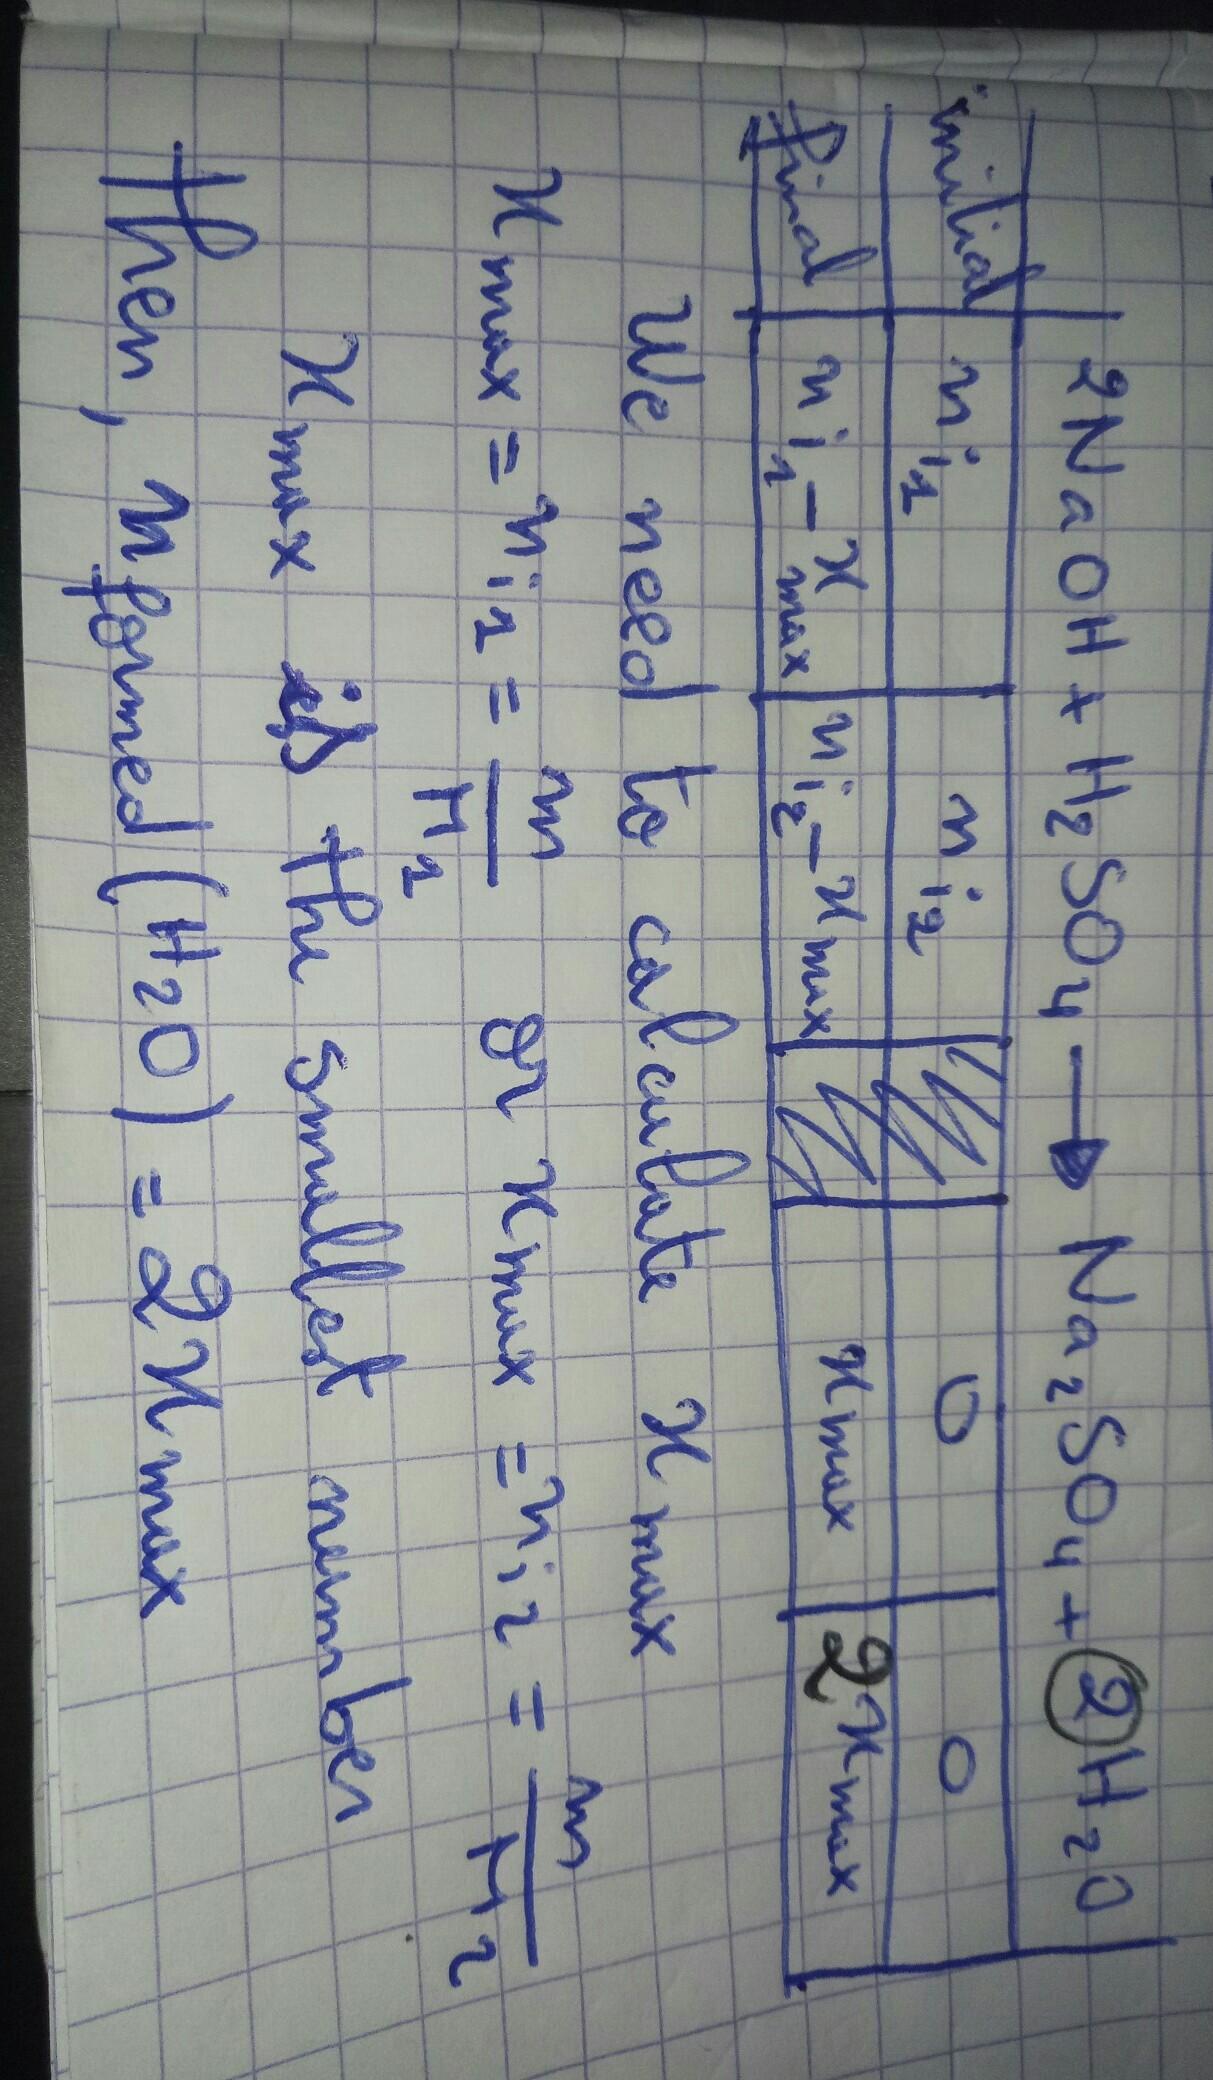 2NaOH + H₂SO₄ → Na₂SO₄ + 2H₂O
initial nᵢ₁ nᵢ₂ 0 0
final nᵢ₁ - xmax nᵢ₂ - xmax xmax 2xmax
We need to calculate xmax
xmax = nᵢ₁ = m/M₁ or xmax = nᵢ₂ = m/M₂
xmax is the smallest number
then, nformed(H₂O) = 2xmax